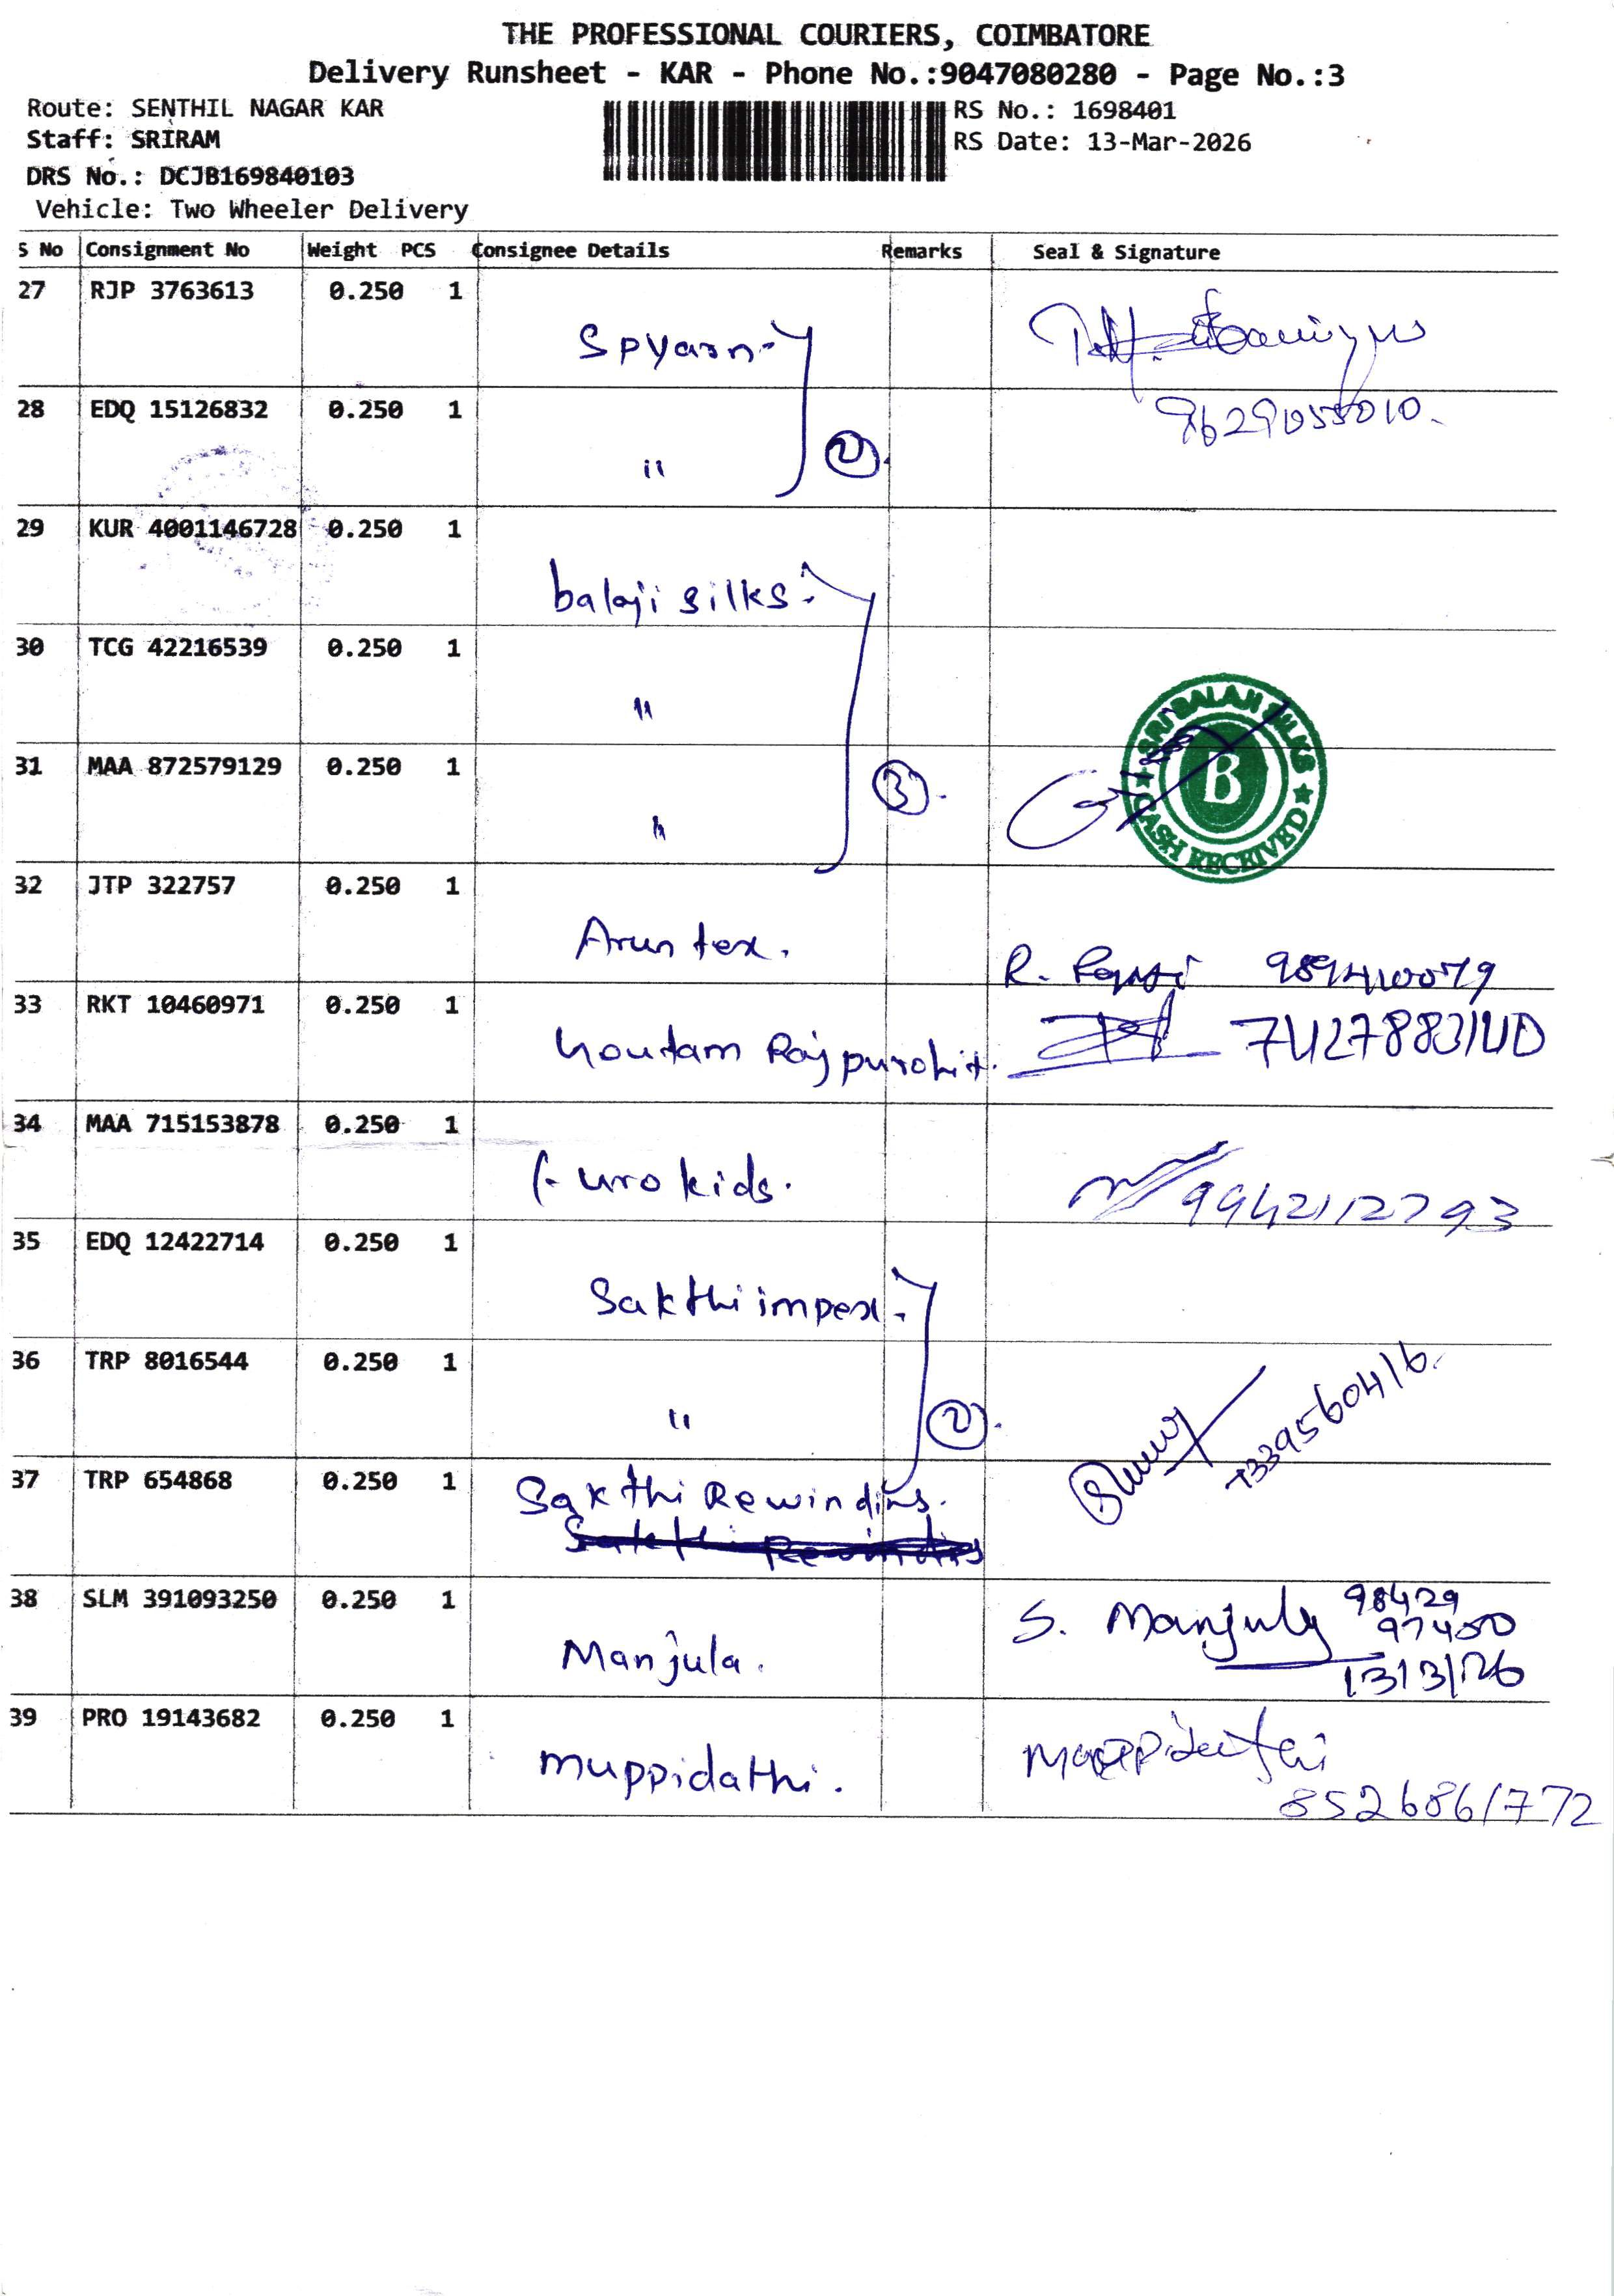 THE PROFESSIONAL COURIERS, COIMBATORE
Delivery Runsheet - KAR - Phone No.:9047080280 - Page No.:3
Route: SENTHIL NAGAR KAR
RS No.: 1698401
Staff: SRIRAM
RS Date: 13-Mar-2026
DRS No.: DCJB169840103
Vehicle: Two Wheeler Delivery
S No Consignment No Weight PCS Consignee Details Remarks Seal & Signature
27 RJP 3763613 0.250 1
Spyarn
28 EDQ 15126832 0.250 1
" 2
29 KUR 4001146728 0.250 1
balaji silks
30 TCG 42216539 0.250 1
"
31 MAA 872579129 0.250 1
" 3
SRI BALAJI SILKS
B
CASH RECEIVED
32 JTP 322757 0.250 1
Arun tex.
R.
33 RKT 10460971 0.250 1
Rajpurohit.
34 MAA 715153878 0.250 1
kids. 9942112793
35 EDQ 12422714 0.250 1
Sakthi impex
36 TRP 8016544 0.250 1
" 2
7339560416.
37 TRP 654868 0.250 1
Sakthi Rewindins.
38 SLM 391093250 0.250 1
Manjula.
S. Manjula 98429
97400
13/3/26
39 PRO 19143682 0.250 1
muppidathi.
8526861772